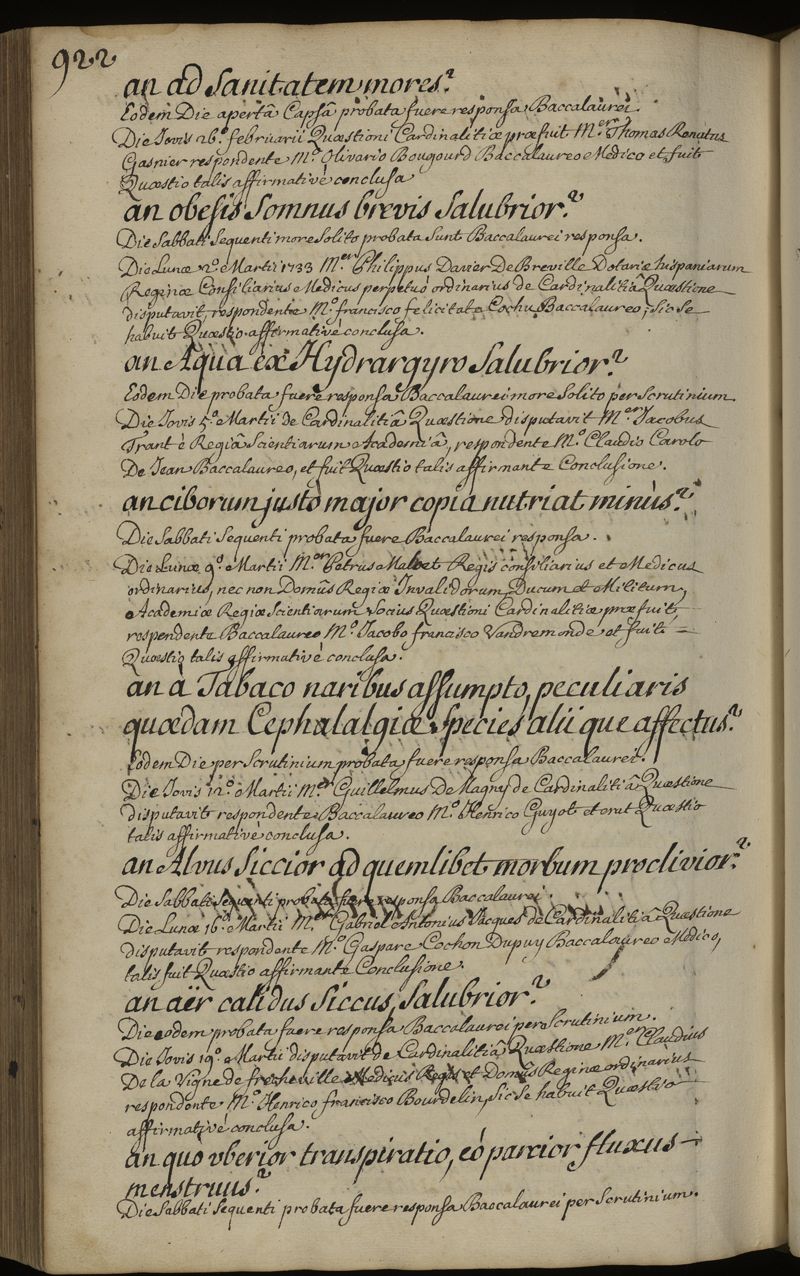 922
an ad Sanitatem mores?
Eodem Die apertâ Capsâ probata fuere responsa Baccalaurei.
Die Jovis 26.ª februarii Quæstioni Cardinalitiæ præfuit M.er Thomas Renatus
Gasnier respondente M.º Olivario Bougourd Baccalaureo Medico et fuit
Quæstio talis affirmativè conclusa
an obesis Somnus brevis Salubrior?
Die Sabbati Sequenti more Solito probata Sunt Baccalaurei responsa.
Die Lunæ 2.ª Martii 1733 M.er Philippus Davier De Breville Dotariæ hispaniarum
Reginæ Consiliarius Medicus perpetuò ordinarius de Cardinalitiâ Quæstione
disputavit, respondente M.º francisco felicitate Cochu Baccalaureo, Sic Se
habuit Quæstio affirmativè conclusa.
an Aqua ex Hydrargyro Salubrior?
Eodem Die probata fuere responsa Baccalaurei more Solito per Scrutinium.
Die Jovis 5.ª Martii de Cardinalitiâ Quæstione disputavit M.er Jacobus
Trant è Regiâ Scientiarum Academiâ, respondente M.º Claudio Carolo
De Jean Baccalaureo, et fuit Quæstio talis affirmante Conclusione.
an ciborum justò major copia nutriat minùs?
Die Sabbati Sequenti probata fuere Baccalaurei responsa.
Die Lunæ 9.ª Martii M.er Petrus Maloet Regis consiliarius et Medicus
ordinarius, nec non Domûs Regiæ Invalidorum Ducum et Militum,
Academiæ Regiæ Scientiarum Socius Quæstioni Cardinalitiæ præfuit,
respondente Baccalaureo M.º Jacobo francisco Vandremonde et fuit =
Quæstio talis affirmativè conclusa.
an à Tabaco naribus assumpto, peculiaris
quædam Cephalalgiæ Species aliique affectus?
Eodem Die per Scrutinium probata fuere responsa Baccalaurei.
Die Jovis 12.ª Martii M.er Guillelmus De Magny de Cardinalitiâ Quæstione
disputavit respondente Baccalaureo M.º Henrico Guyot et erat Quæstio
talis affirmativè conclusa.
an Alvus Siccior ad quemlibet morbum proclivior?
Die Sabbati Sequenti probata fuere responsa Baccalaurei.
Die Lunæ 16.ª Martii M.er Gabriel Antonius Jacques de Cardinalitiâ Quæstione
disputavit respondente M.º Gaspare Cochon Dupuy Baccalaureo Medico,
talis fuit Quæstio affirmante Conclusione.
an aër calidus Siccus, Salubrior?
Die eodem probata fuere responsa Baccalaurei per Scrutinium.
Die Jovis 19.ª Martii disputavit de Cardinalitiâ Quæstione M.er Claudius
De la Vigne de frecheville Medicus Regis et Domûs Reginæ ordinarius
respondente M.º Henrico francisco Bourdelin, Sic Se habuit Quæstio
affirmativè conclusa.
an quo uberior transpiratio, eò parcior fluxus -
menstruus?
Die Sabbati Sequenti probata fuere responsa Baccalaurei per Scrutinium.